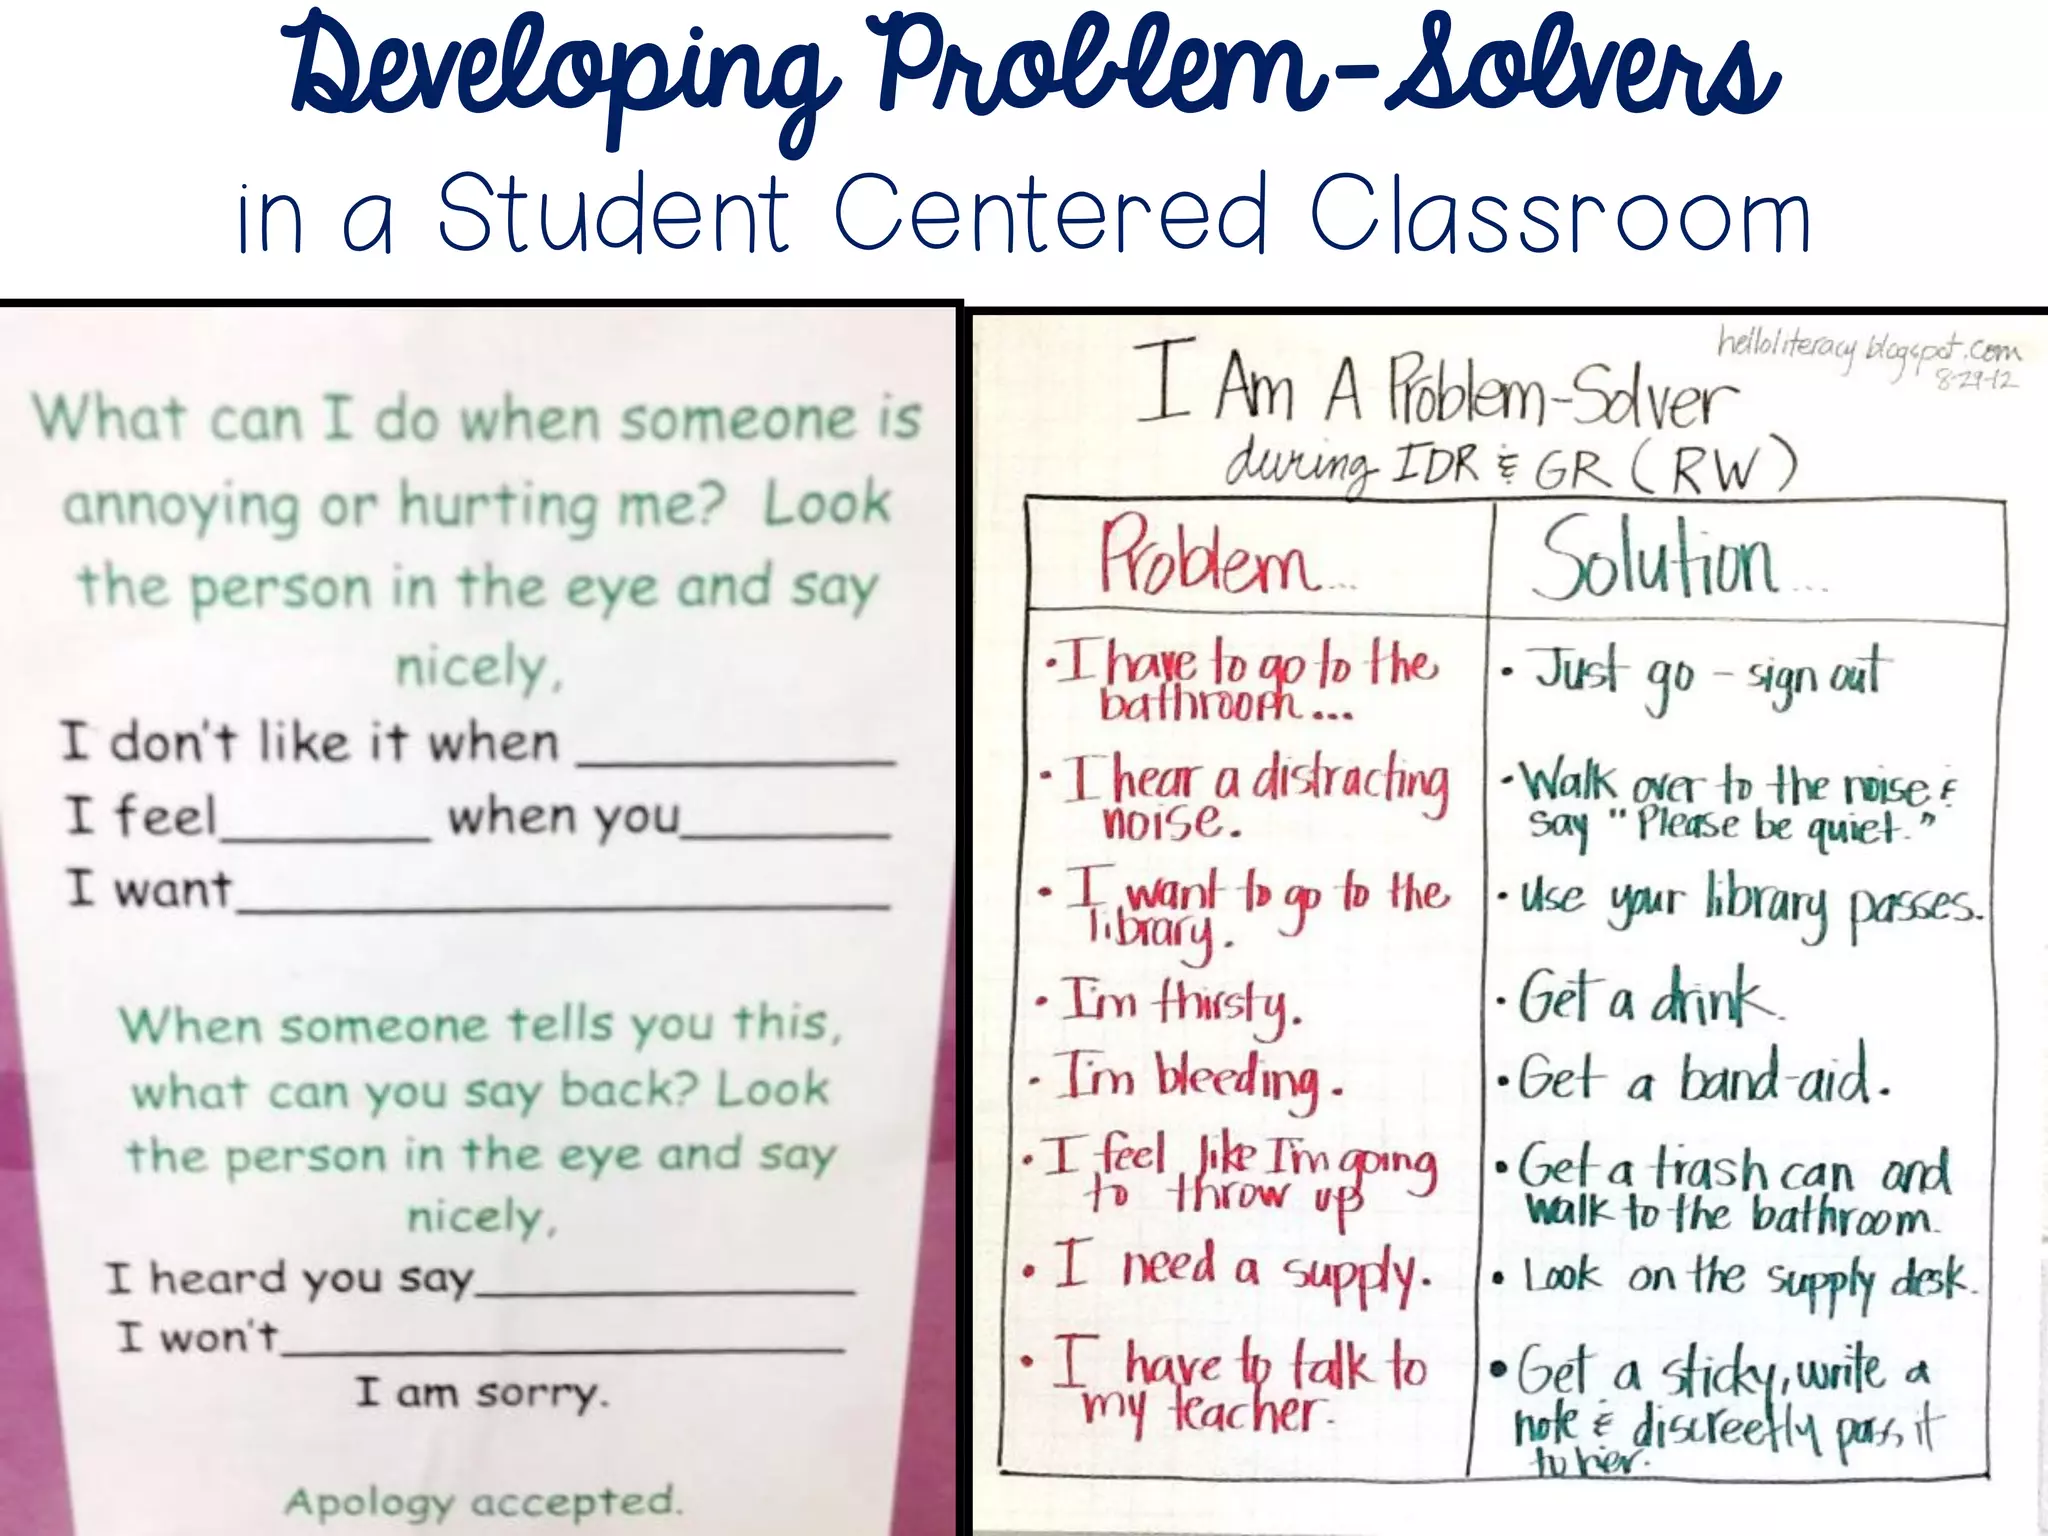 Developing Problem-Solvers
in a Student Centered Classroom
What can I do when someone is
annoying or hurting me? Look
the person in the eye and say
nicely,
I don't like it when ___________
I feel_______ when you_______
I want______________________
When someone tells you this,
what can you say back? Look
the person in the eye and say
nicely,
I heard you say_____________
I won't____________________
I am sorry.
Apology accepted.
helloliteracy.blogspot.com
8-29-12
I Am A Problem-Solver
during IDR & GR (RW)
Problem...
Solution...
• I have to go to the
bathroom...
• Just go - sign out
• I hear a distracting
noise.
• Walk over to the noise &
say "Please be quiet."
• I want to go to the
library.
• Use your library passes.
• I'm thirsty.
• Get a drink.
• I'm bleeding.
• Get a band-aid.
• I feel like I'm going
to throw up
• Get a trash can and
walk to the bathroom.
• I need a supply.
• Look on the supply desk.
• I have to talk to
my teacher.
• Get a sticky, write a
note & discreetly pass it
to her.